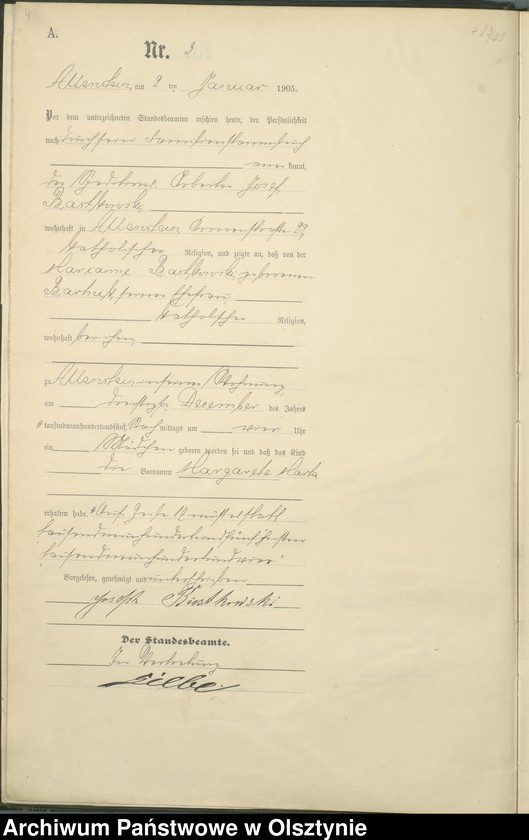 4
+ 23/05
A.
Nr. 3
Allenstein, am 2 ten Januar 1905.
Vor dem unterzeichneten Standesbeamten erschien heute, der Persönlichkeit
nach durch seinen Familienstammbuch
anerkannt,
der Arbeiter Josef
wohnhaft in Allenstein 22,
katholischer Religion, und zeigte an, daß von der
Marianne geborenen
seiner Ehefrau,
katholischer Religion,
wohnhaft bei ihm,
zu Allenstein in seiner Wohnung,
am dreißigsten December des Jahres
tausendneunhundertundfünf, Nachmittags um vier Uhr
ein Mädchen geboren worden sei und daß das Kind
die Vornamen Margarete Marta
erhalten habe. Auf Zeile 12 muss es statt
tausendneunhundertundfünf heißen
"tausendneunhundertundvier"
Vorgelesen, genehmigt und unterschrieben
Der Standesbeamte.
In Vertretung
Archiwum Państwowe w Olsztynie